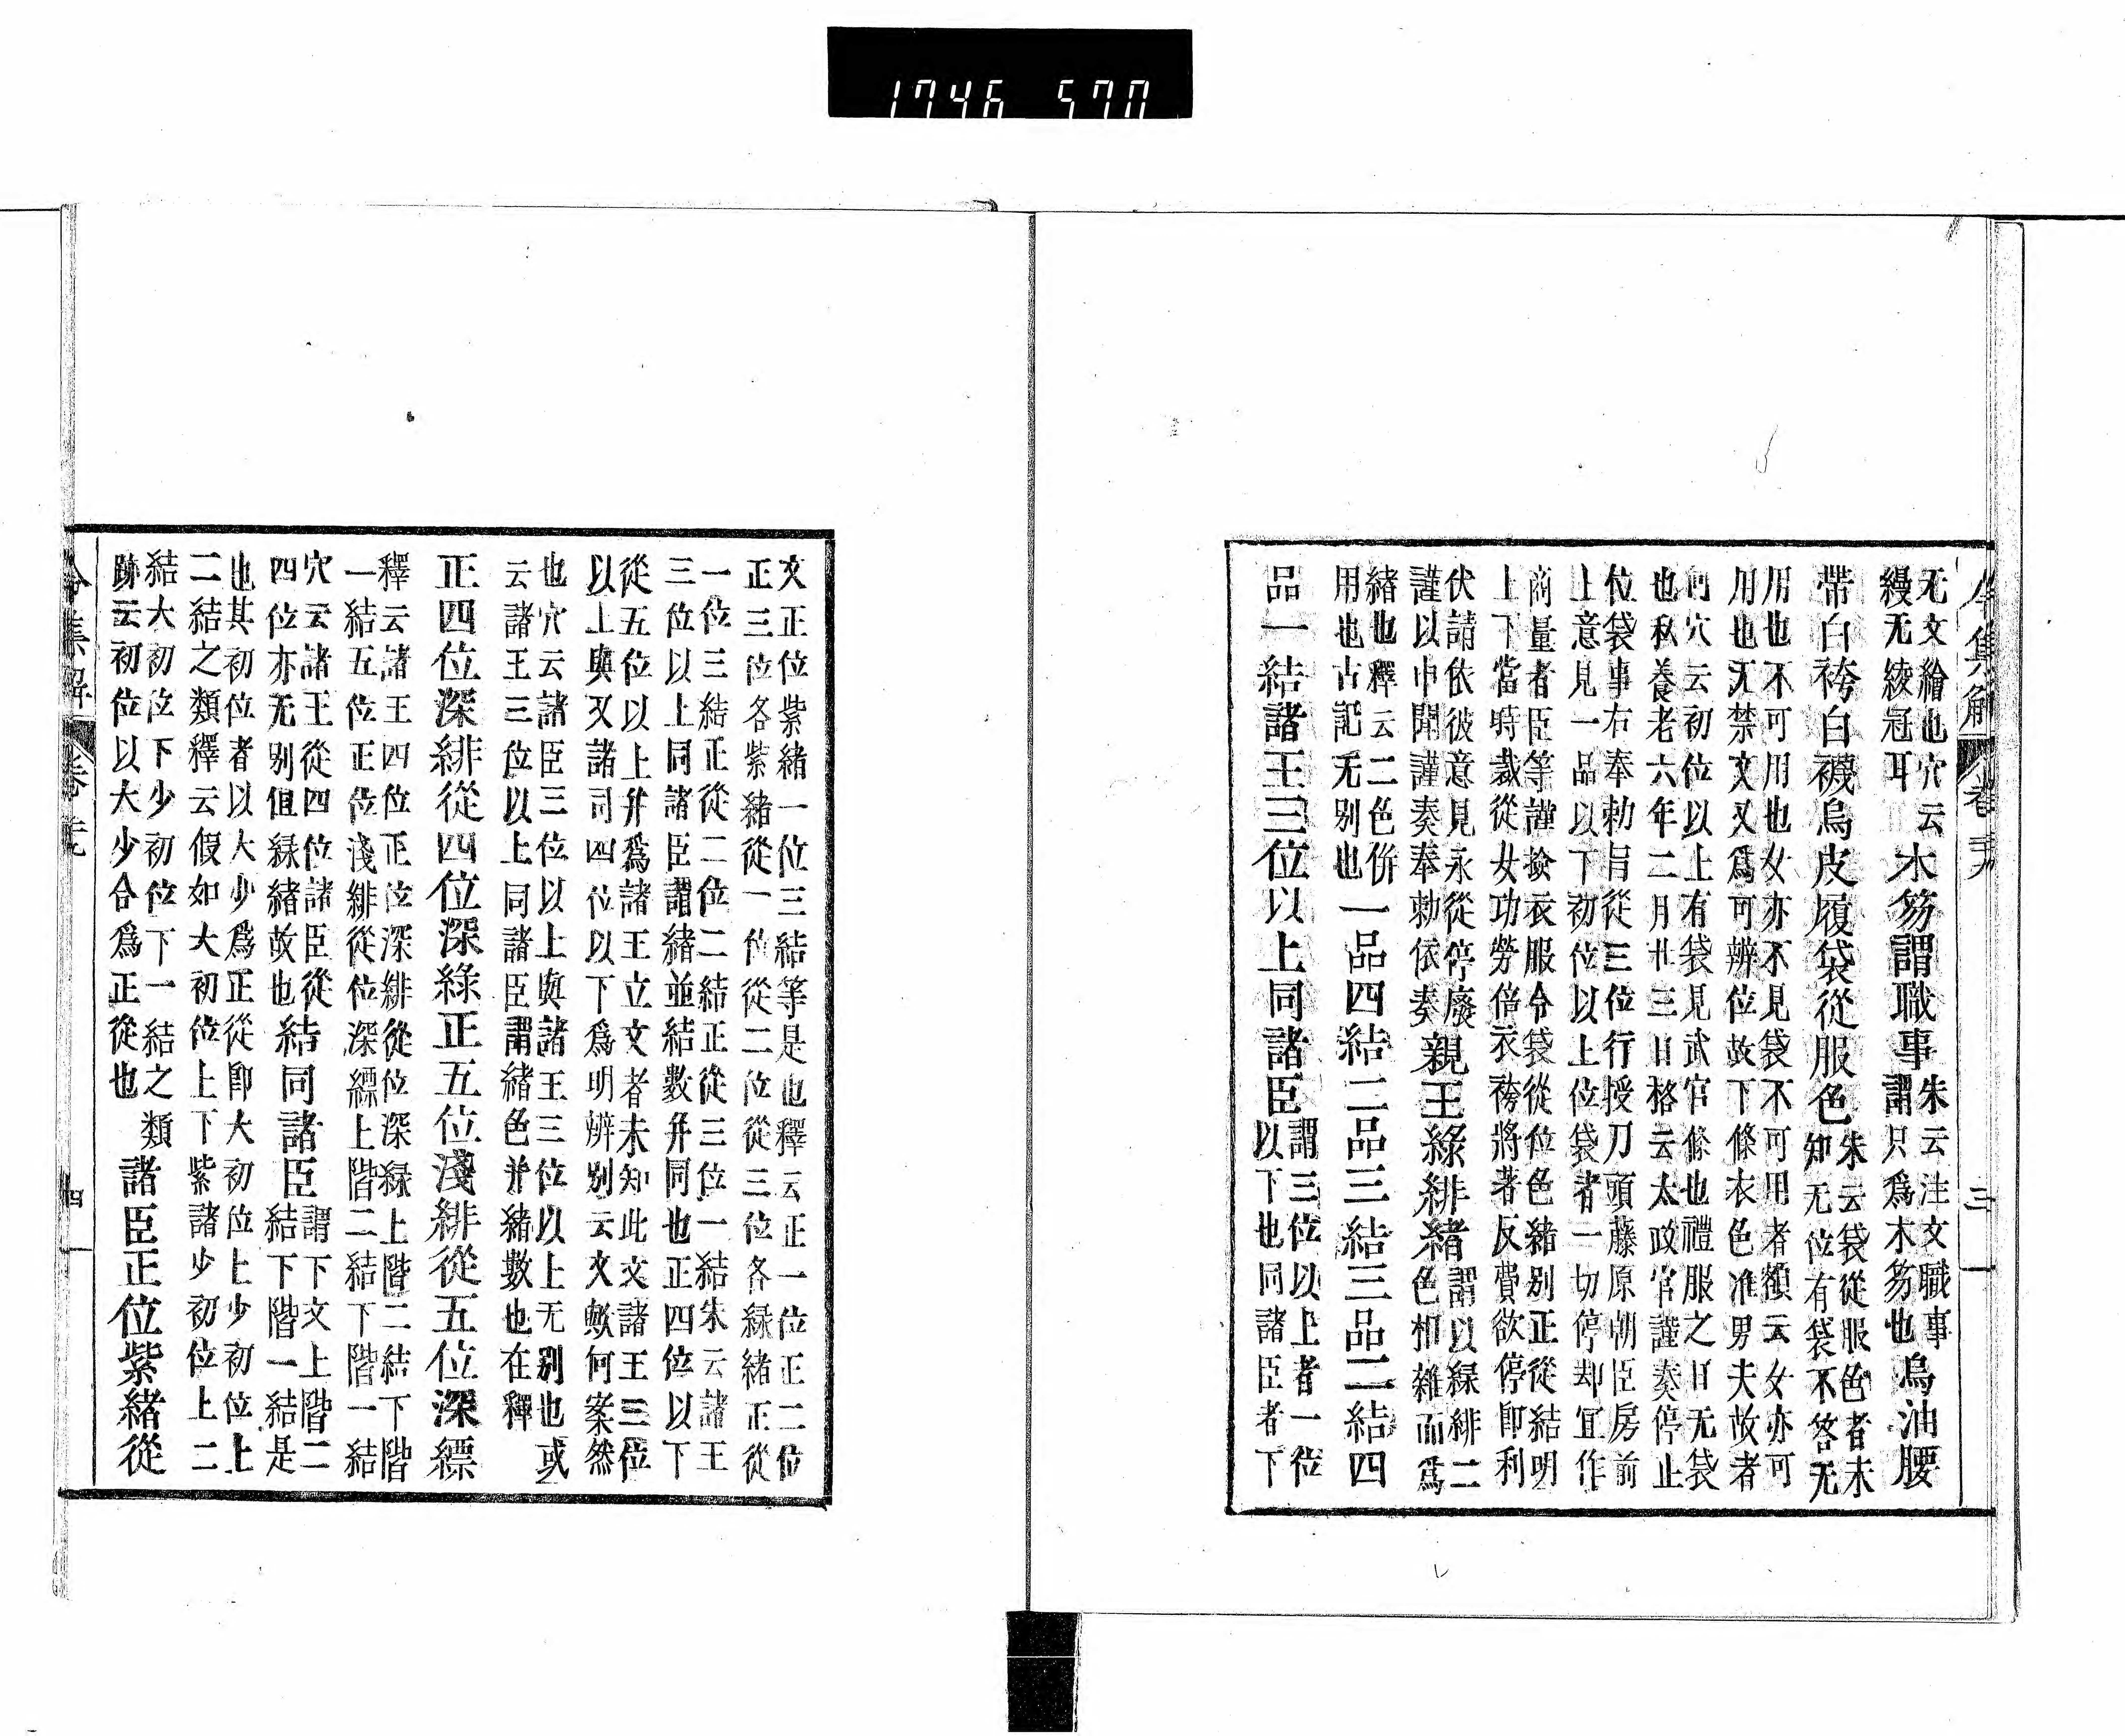 令集解 卷二十九 三
无文繪也穴云
縵无綾冠耳
木笏謂職事
朱云注文職事
謂只爲木笏也
烏油腰
帶白袴白襪烏皮履袋從服色
朱云袋從服色者未
知无位有袋不答无
用也不可用也女亦不見袋不可用者額云女亦可
用也无禁文又爲可辨位故下條衣色准男夫故者
何穴云初位以上有袋見武官條也禮服之日无袋
也私養老六年二月廿三日格云太政官謹奏停止
位袋事右奉勅旨從三位行授刀頭藤原朝臣房前
上意見一品以下初位以上位袋者一切停却宜作
商量者臣等謹撿衣服令袋從位色緒别正從結明
上下當時裁從女功勞倍衣袴將著反費欲停即利
伏請依彼意見永從停廢
謹以申聞謹奏奉勅依奏
親王綠緋緒
謂以緑緋二
色相雜而爲
緒也釋云二色併
用也古記无别也
一品四結二品三結三品二結四
品一結諸王三位以上同諸臣
謂三位以上者一位
以下也同諸臣者下
文正位紫緒一位三結等是也釋云正一位正二位
正三位各紫緒從一位從二位從三位各緑緒正從
一位三結正從二位二結正從三位一結朱云諸王
三位以上同諸臣謂緒並結數并同也正四位以下
從五位以上并爲諸王立文者未知此文諸王三位
以上與又諸司四位以下爲明辨别云文歟何案然
也穴云諸臣三位以上與諸王三位以上无别也或
云諸王三位以上同諸臣謂緒色并緒數也在釋
正四位深緋從四位深綠正五位淺緋從五位深縹
釋云諸王四位正位深緋從位深緑上階二結下階
一結五位正位淺緋從位深縹上階二結下階一結
穴云諸王從四位諸臣從
四位亦无别但緑緒故也
結同諸臣
謂下文上階二
結下階一結是
也其初位者以大少爲正從即大初位上少初位上
二結之類釋云假如大初位上下紫諸少初位上二
結大初位下少初位下一結之類
跡云初位以大少合爲正從也
諸臣正位紫緒從
令集解 卷二十九 四